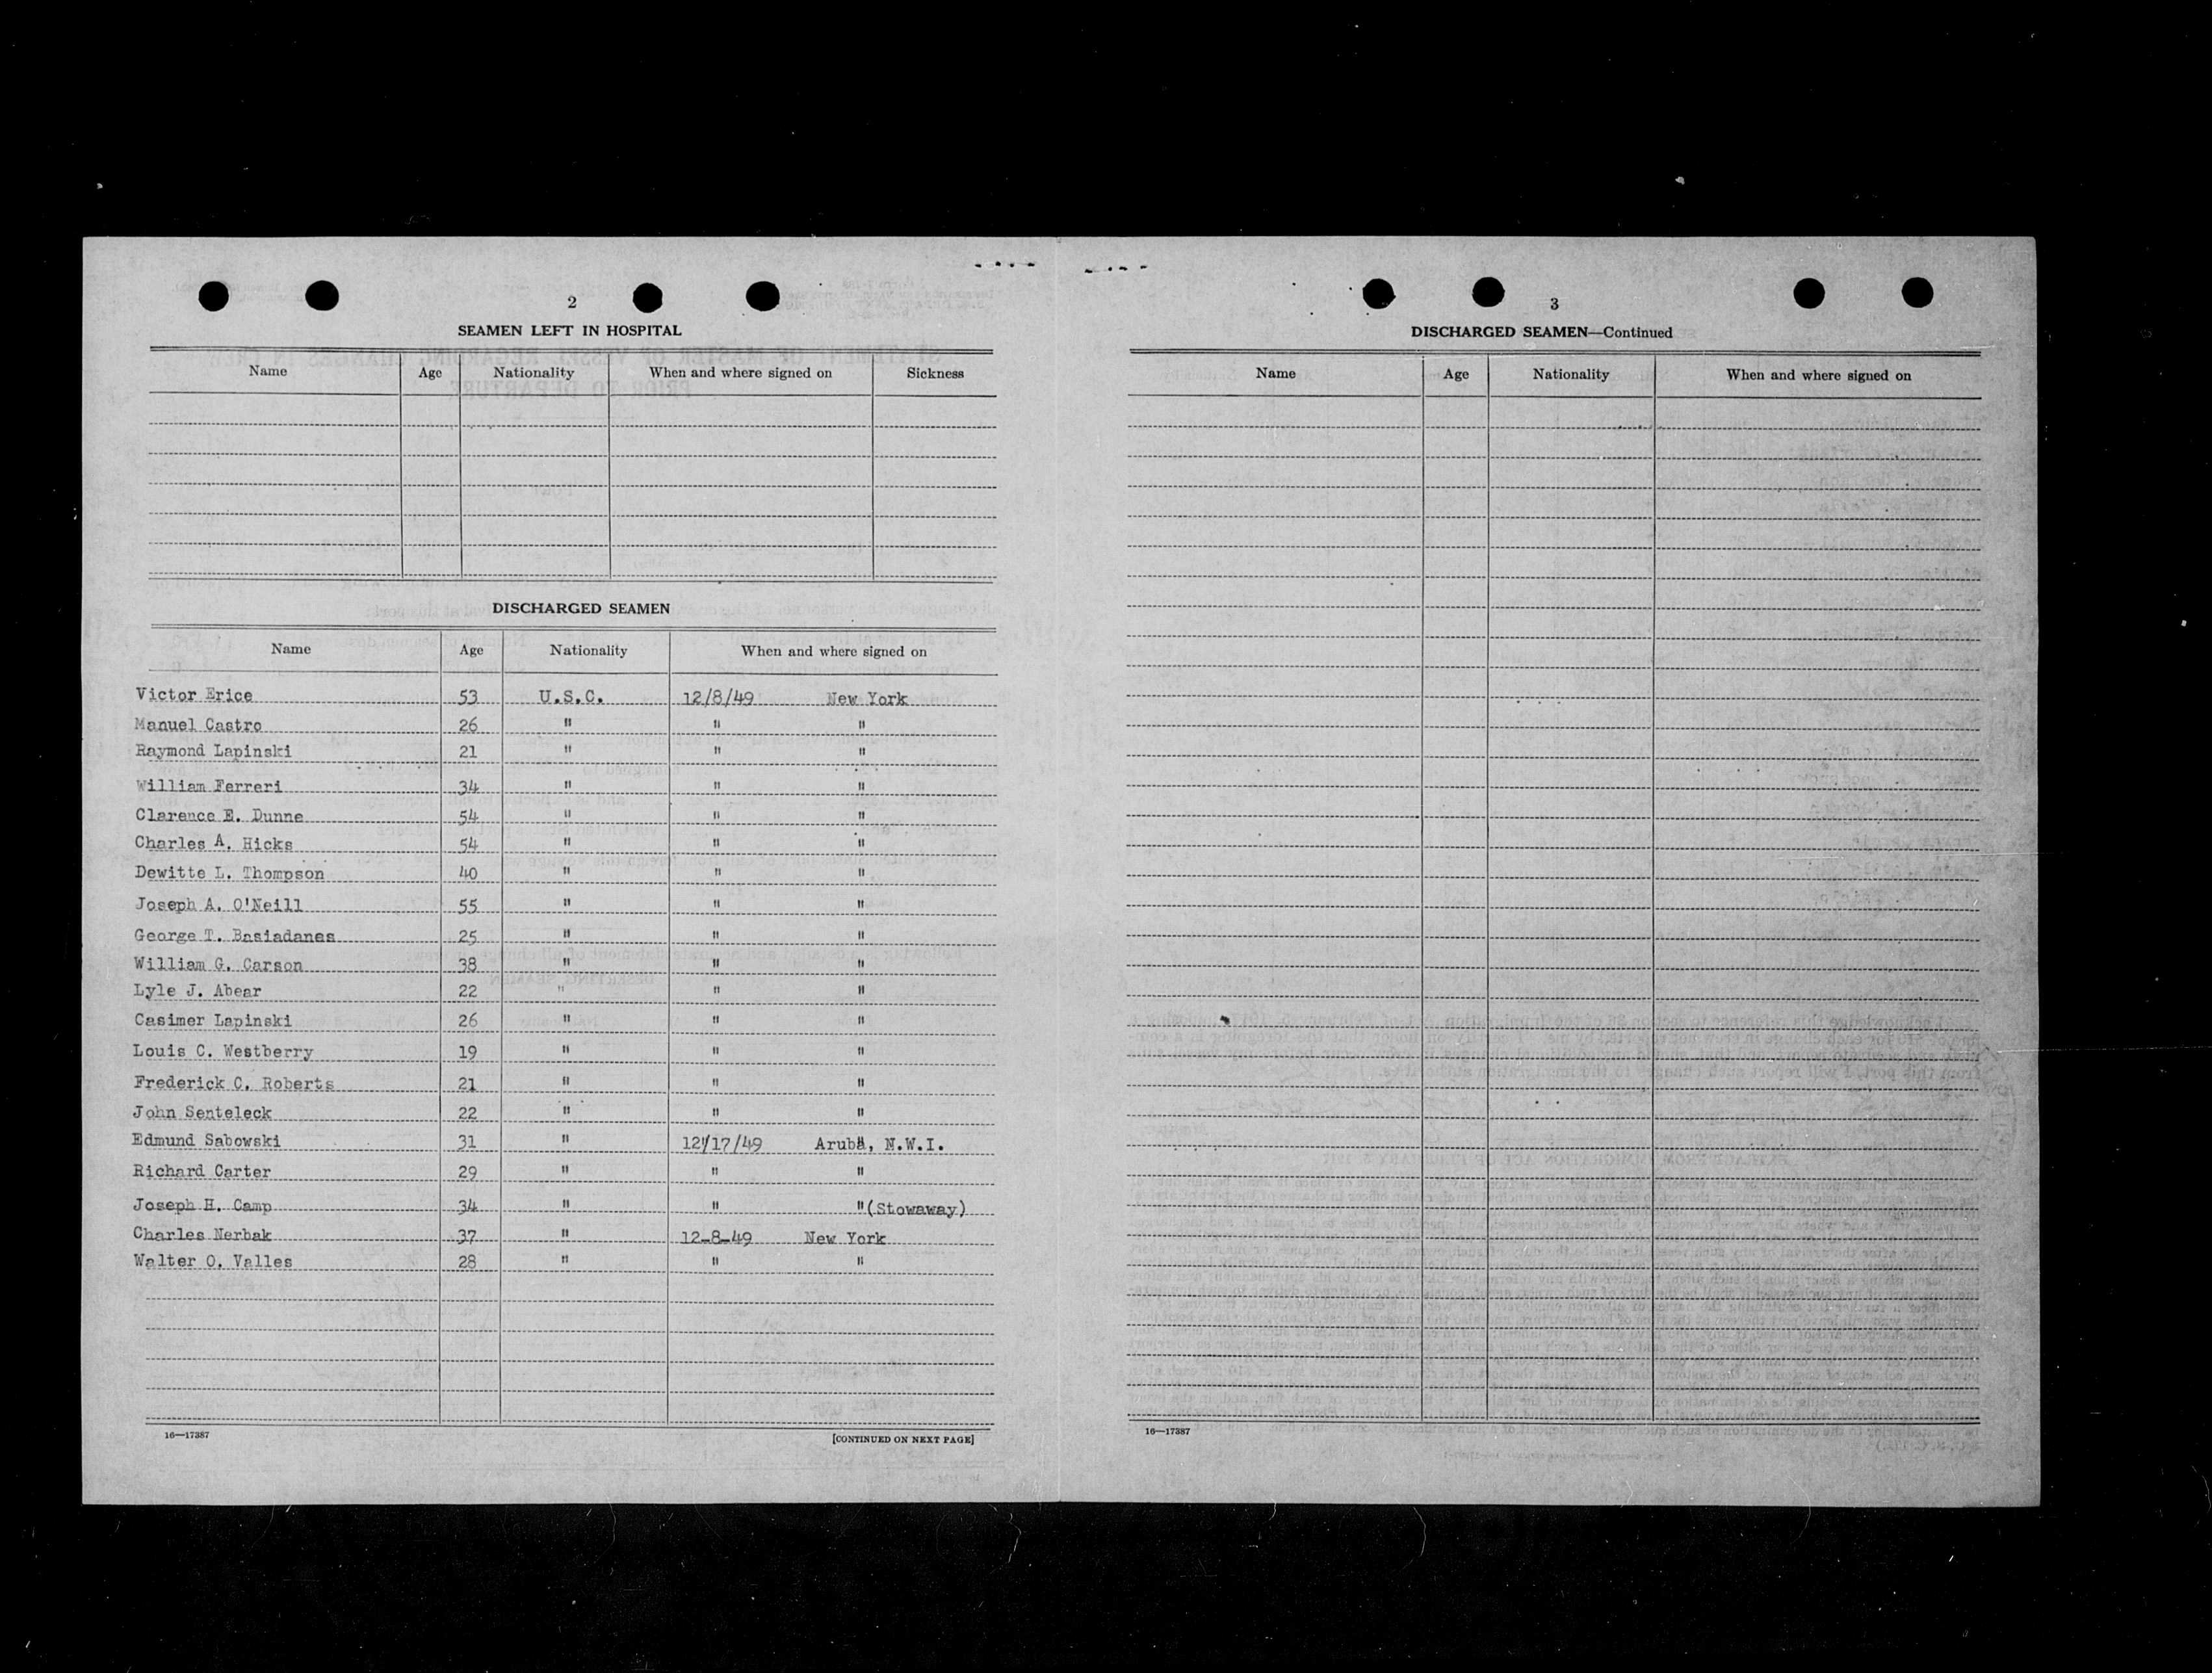 2
SEAMEN LEFT IN HOSPITAL
Name Age Nationality When and where signed on Sickness
DISCHARGED SEAMEN
Name Age Nationality When and where signed on
Victor Erice 53 U.S.C. 12/8/49 New York
Manuel Castro 26 " " "
Raymond Lapinski 21 " " "
William Ferreri 34 " " "
Clarence E. Dunne 54 " " "
Charles A. Hicks 54 " " "
Dewitte L. Thompson 40 " " "
Joseph A. O'Neill 55 " " "
George T. Basiadanes 25 " " "
William G. Carson 38 " " "
Lyle J. Abear 22 " " "
Casimer Lapinski 26 " " "
Louis C. Westberry 19 " " "
Frederick C. Roberts 21 " " "
John Senteleck 22 " " "
Edmund Sabowski 31 " 12/17/49 Aruba, N.W.I.
Richard Carter 29 " " "
Joseph H. Camp 34 " " "(Stowaway)
Charles Nerbak 37 " 12-8-49 New York
Walter O. Valles 28 " " "
16—17387
[CONTINUED ON NEXT PAGE]
3
DISCHARGED SEAMEN—Continued
Name Age Nationality When and where signed on
16—17387